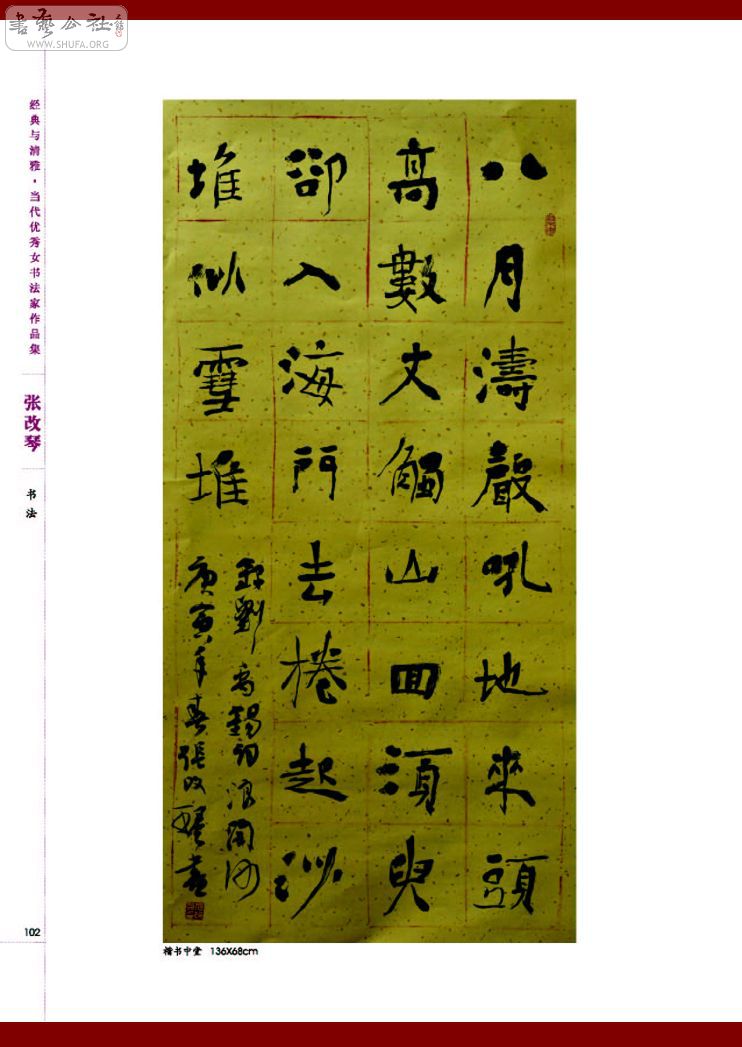 書藝公社
WWW.SHUFA.ORG
经典与清雅·当代优秀女书法家作品集
张改琴
书法
102
八月濤聲吼地來頭
高數丈觸山回須臾
卻入海門去捲起沙
堆似雪堆
錄劉禹錫詞浪淘沙
庚寅年春張改琴書
楷书中堂 136X68cm